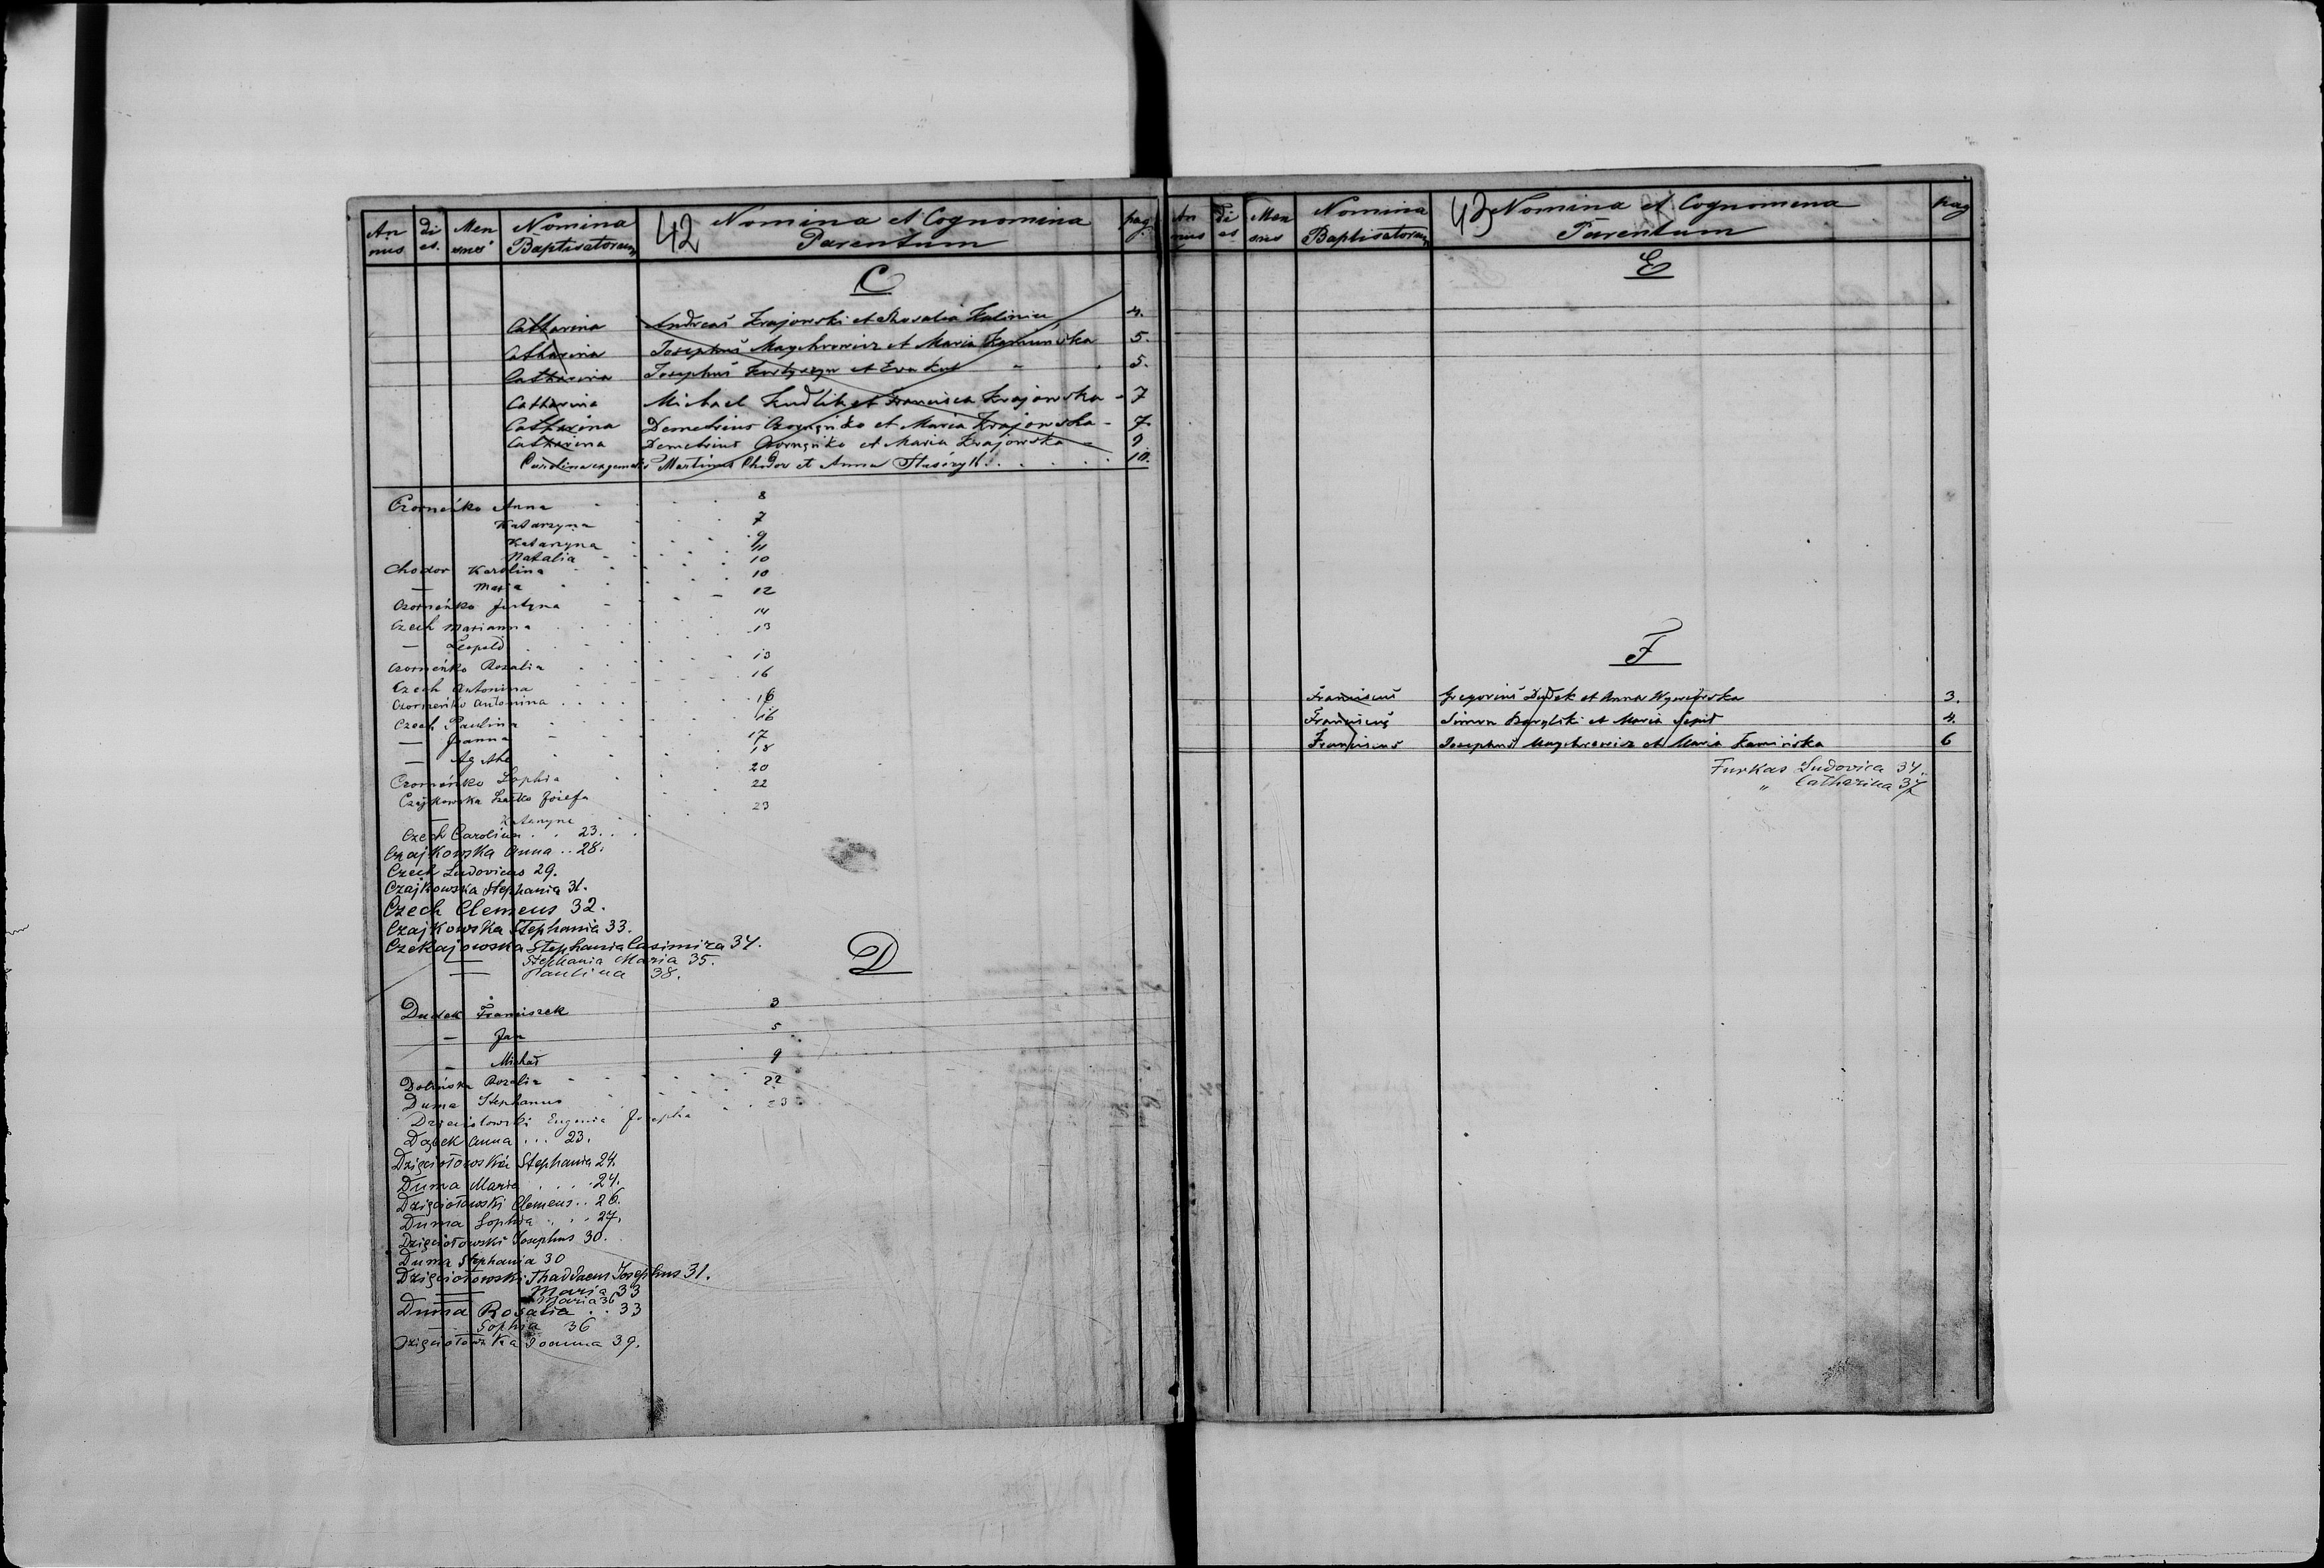 An
nus
di
es.
Men
snes
Nomina
Baptisatorum
42 Nomina et Cognomina
Parentum
pag.
C
Catharina Andreas Krajowski et Rosalia Kaliniec 4.
Catharina Josephus Maychrowicz et Maria Kamińska 5.
Catharina Josephus et Eva 5.
Catharina Michael Kudlik et Francisca Krajowska - 7
Catharina Demetrius Czorneńko et Maria Krajowska - 7.
Catharina Demetrius Czorneńko et Maria Krajowska - 9
Carolina Martinus Chodor et Anna 10.
Czorneńko Anna 8
Katarzyna 7
Katarzyna 9
Natalia 11
Chodor Karolina 10
— Maria 10
Czorneńko Justyna 12
Czech Marianna 14
— Leopold 13
Czorneńko Rozalia 13
Czech Antonina 16
Czorneńko Antonina 16
Czech Paulina 16
— Joanna 17
— Agathe 18
Czorneńko Zophia 20
Czajkowska Józefa 22
— Katarzyna 23
Czech Carolina . . 23. . .
Czajkowska Anna . . 28.
Czech Ludovicus 29.
Czajkowska Stephania 31.
Czech Clemens 32.
Czajkowska Stephania 33.
Czekajowska Stephania Casimira 34.
— Stephania Maria 35.
— Paulina 38.
D
Dudek Franciszek 3
— Jan 5
— Michał 9
Dolińska Rozalia 22
Duma Stephanus 23
Dzieciołowski Eugenia Josepha
Dąbek Anna . . . 23.
Dzięciołowska Stephania 24.
Duma Maria . . . . 24.
Dzięciołowski Clemens . . 26.
Duma Sophia . . . 27.
Dzięciołowski Josephus 30.
Duma Stephania 30
Dzięciołowski Thaddaeus Josephus 31.
— Maria 33
Maria 36
Duma Rosalia . . 33
— Sophia 36
Dzięciołowska Joanna 39.
An
nus
di
es
Men
snes
Nomina
Baptisatorum
43 Nomina et Cognomena
Parentum
pag
E
F
Franciscus Gregorius Dudek et Anna 3.
Franciscus Simon et Maria 4.
Franciscus Josephus Maychrowicz et Maria Kamińska 6
Furkas Ludovica 34.
" Catharina 37